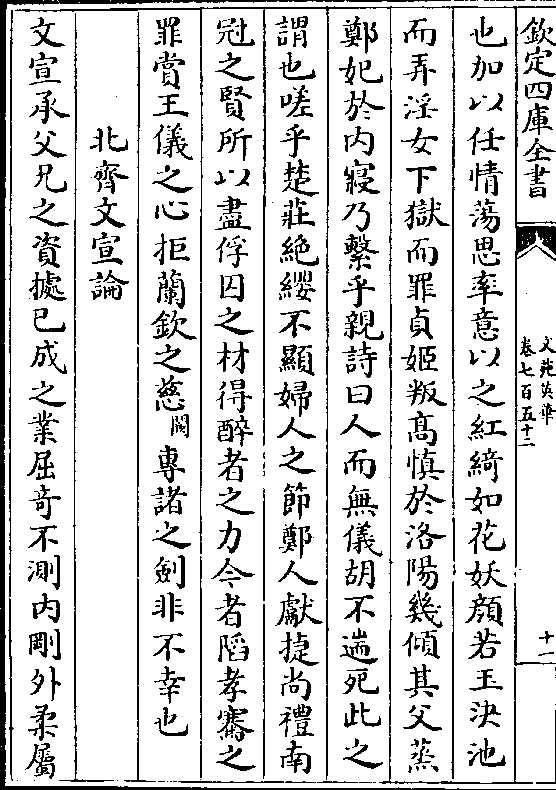 欽定四庫全書
文苑英華
卷七百五十二
十一
也加以任情蕩思率意以之紅綺如花妖顔若玉決池
而弄淫女下獄而罪貞姬叛髙慎於洛陽幾傾其父蒸
鄭妃於内寢乃繫乎親詩曰人而無儀胡不遄死此之
謂也嗟乎楚莊絶纓不顯婦人之節鄭人獻捷尚禮南
冠之賢所以盡俘囚之材得醉者之力今者陷孝審之
罪賞王儀之心拒蘭欽之慈闕專諸之劍非不幸也
北齊文宣論
文宣承父兄之資據已成之業屈竒不測内剛外柔屬